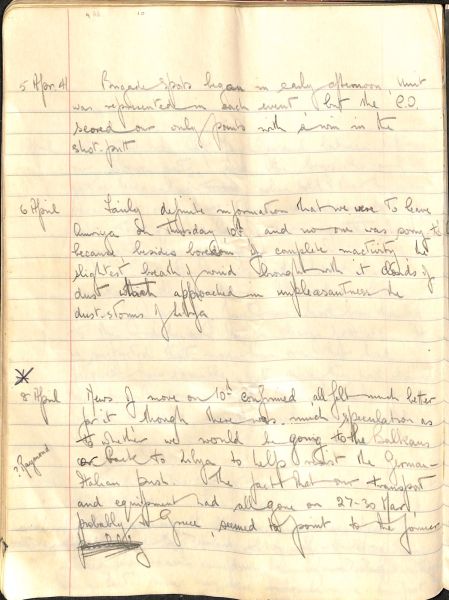 5 Apr. 41 Brigade sports began in early afternoon, Unit
was represented in each event but the C.O.
scored our only points with a win in the
shot-putt
6 April Fairly definite information that we were to leave
Amiriya on Thursday 10th and no one was sorry to
because, besides boredom of complete inactivity, the
slightest breath of wind brought with it clouds of
dust which approached in unpleasantness the
dust-storms of Libya
8 April News of move on 10th confirmed, all felt much better
for it though there was much speculation as
to whether we would be going to the Balkans
? Raymond or back to Libya to help resist the German-
Italian push. The fact that our transport
and equipment had all gone on 27-30 March,
probably to Greece, seemed to point to the former